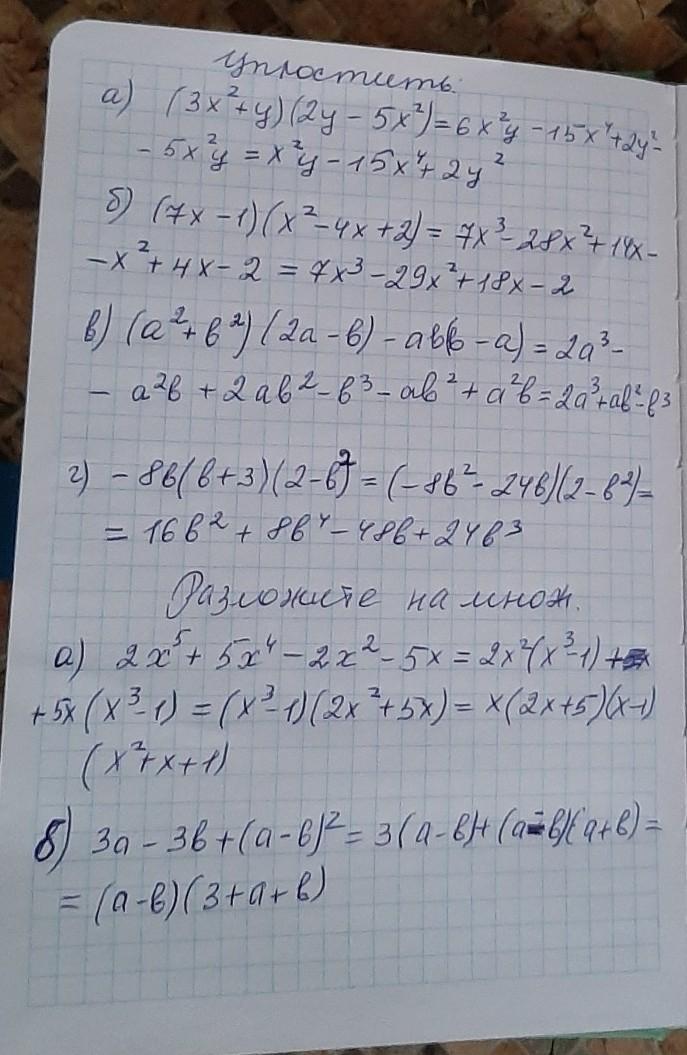 Упростить:
а) (3x²+y)(2y-5x²)=6x²y-15x⁴+2y²-
-5x²y=x²y-15x⁴+2y²
б) (7x-1)(x²-4x+2)=7x³-28x²+14x-
-x²+4x-2=7x³-29x²+18x-2
в) (a²+b²)(2a-b)-ab(b-a)=2a³-
-a²b+2ab²-b³-ab²+a²b=2a³+ab²-b³
г) -8b(b+3)(2-b²)=(-8b²-24b)(2-b²)=
=16b²+8b⁴-48b+24b³
Разложите на множ.
а) 2x⁵+5x⁴-2x²-5x=2x²(x³-1)+
+5x(x³-1)=(x³-1)(2x²+5x)=x(2x+5)(x-1)
(x²+x+1)
б) 3a-3b+(a-b)²=3(a-b)+(a-b)(a+b)=
=(a-b)(3+a+b)